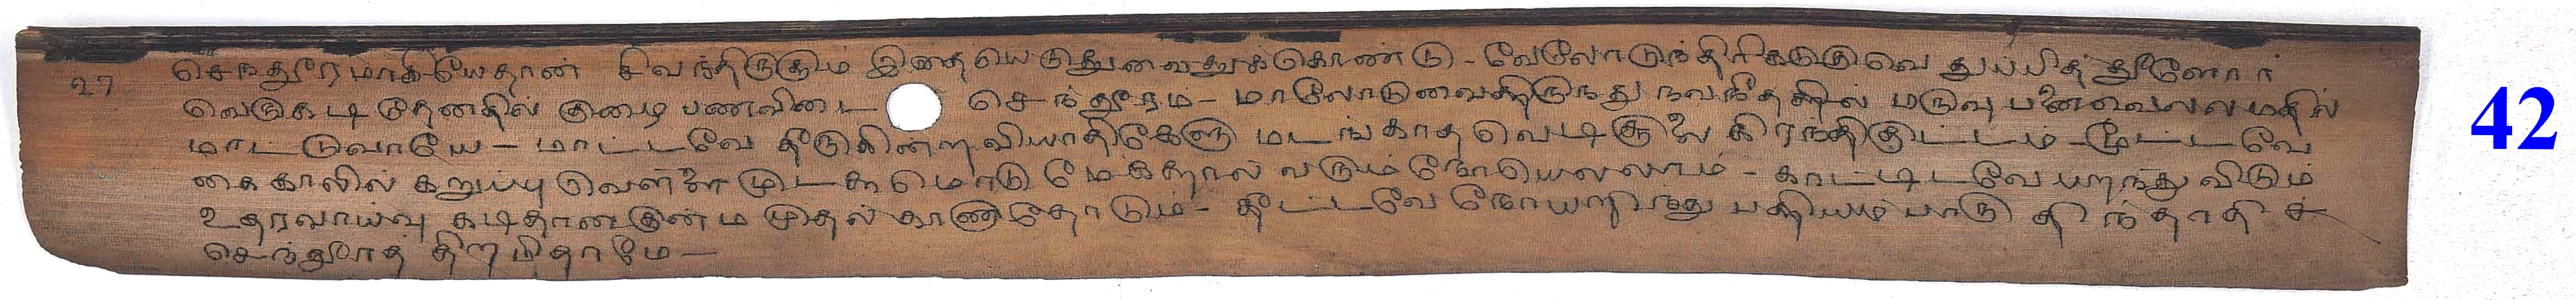 27 செநதூரமாகியேதான் சிவந்திருகும் இதையெடுதுவைதுக்கொண்டு - வேலோடுந்திரிகடுகுவெ துப்பித தூளோர்
வெருகடி தேனதில் குழை பணவிடை செந்தூரம் - மாலோடுவைகிருந்து நவநீதகில் மருவு பனைவெலலமதில்
மாட்டுவாயே - மாட்டவே தீருகின்ற வியாதிகேளு மடங்காத வெடிசூலை கிரந்திகுட்டம்
கைகாலில் கறுப்பு வெள்ளை முடகமொடு மேகதால் வரும் நோயெலலாம் - காட்டிடவே பறந்து விடும்
உதரவாய்வு கடிதான குன்ம முதல் காணாதோடும் - தீட்டவே நோயறிந்து பதியம் பாரு
செந்தூரத் திற மிதாமே -
42